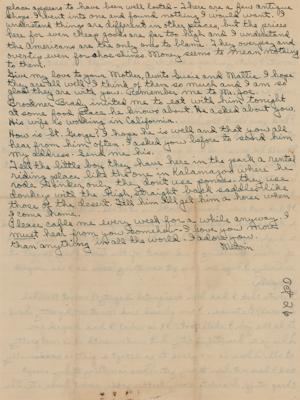 place appears to have been well looted - There are a few antique
shops I went into one and found nothing I would want. I
understand things are different in other places, but the prices
here for even cheap goods are far too high and I understand
the Americans are the only ones to blame. They overpay and
overtip even for shoe shines. Money seems to mean nothing
to them.
Give my love to your Mother, Aunts Susie and Mattie. I hope
they are all well. I think of them so much and I am so
glad they are with you. Remember me to Mr. Lot.
Brodner Brady invited me to eat with him tonight
at some food place he knows about. He asked about you.
His wife is working in California.
How is St. George? I hope he is well and that you all
hear from him often. I asked you before to send him
my address. Send me his.
Tell the little boy they have here in the park a rental
riding place like the one in Kalamazoo where he
rode. Here they don't use ponies. they use
donkeys with the high straight back saddles like
those of the desert. Tell him I'll get him a horse when
I come home.
Please cable me every week for a while anyway. I
must hear from you somehow - I love you more
than anything in all the world - I adore you.
Melvin
Oct 26